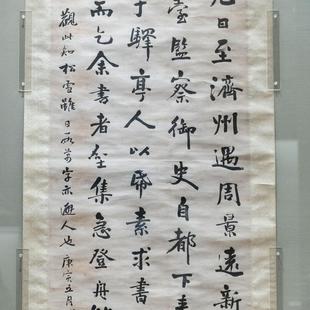 九日至濟州遇周景遠新
臺監察御史自都下來
于驛亭人以帋素求書
而乞余書者坌集急登舟解
觀此知松雪雖日不善字亦避人也庚寅五月